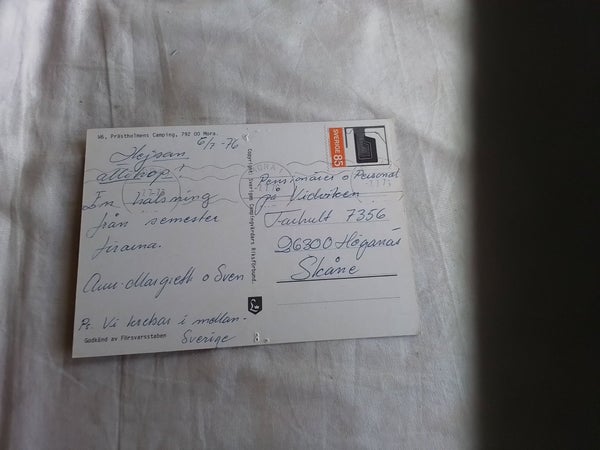 W6, Prästholmens Camping, 792 00 Mora.
6/7 -76
Hejsan
allihop!
En hälsning
från semester
firarna.
Ann-Margrett o Sven
Ps. Vi kuskar i mellan-
Sverige
Godkänd av Försvarsstaben
Copyright Sveriges Campingvärdars Riksförbund.
SVERIGE 85
MORA 1
Pensionärer o Personal
på Vidviken
Farhult 7356
26300 Höganäs
Skåne